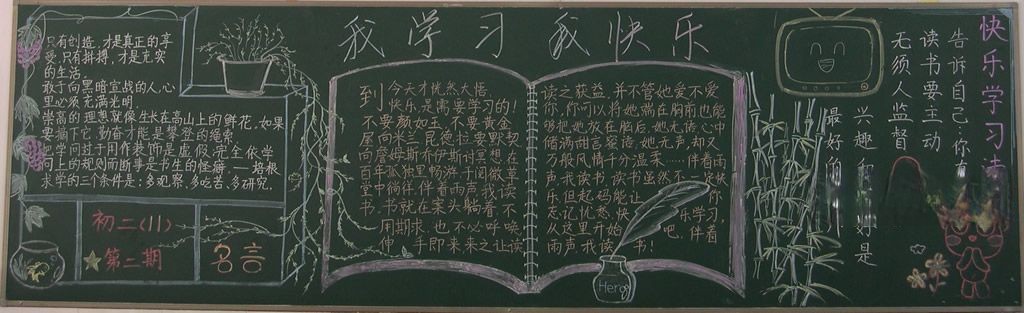 我学习 我快乐
只有创造,才是真正的享
受,只有拼搏,才是充实
的生活。
敢于向黑暗宣战的人,心
里必须充满光明。
崇高的理想就像生长在高山上的鲜花。如果
要摘下它,勤奋才能是攀登的绳索。
把学问过于用作装饰是虚假;完全依学
问上的规则而断事是书生的怪癖。——培根
求学的三个条件是:多观察、多吃苦、多研究。
初二(11)
第二期
名言
到今天才恍然大悟,
快乐是需要学习的!
不要颜如玉,不要黄金
屋,向米兰昆德拉要默契,
向詹姆斯乔伊斯付冥想,在
百年孤独里畅游,于阅微草
堂中徜徉。伴着雨声,我读
书。书就在案头躺着,不
用期求,也不必呼唤,
伸手即来,来之让读
读之获益,并不管她爱不爱
你,你可以将她端在胸前,也能
够把她放在脑后,她无语,心中
储满甜言蜜语,她无声,却又
万般风情千分温柔……伴着雨
声,我读书,读书虽然不一定快
乐,但起码能让你
忘记忧愁,快乐学习,
从这里开始吧,伴着
雨声,我读书!
Hero
快乐学习读
告诉自己:你有
读书要主动
无须人监督
兴趣和好是
最好的